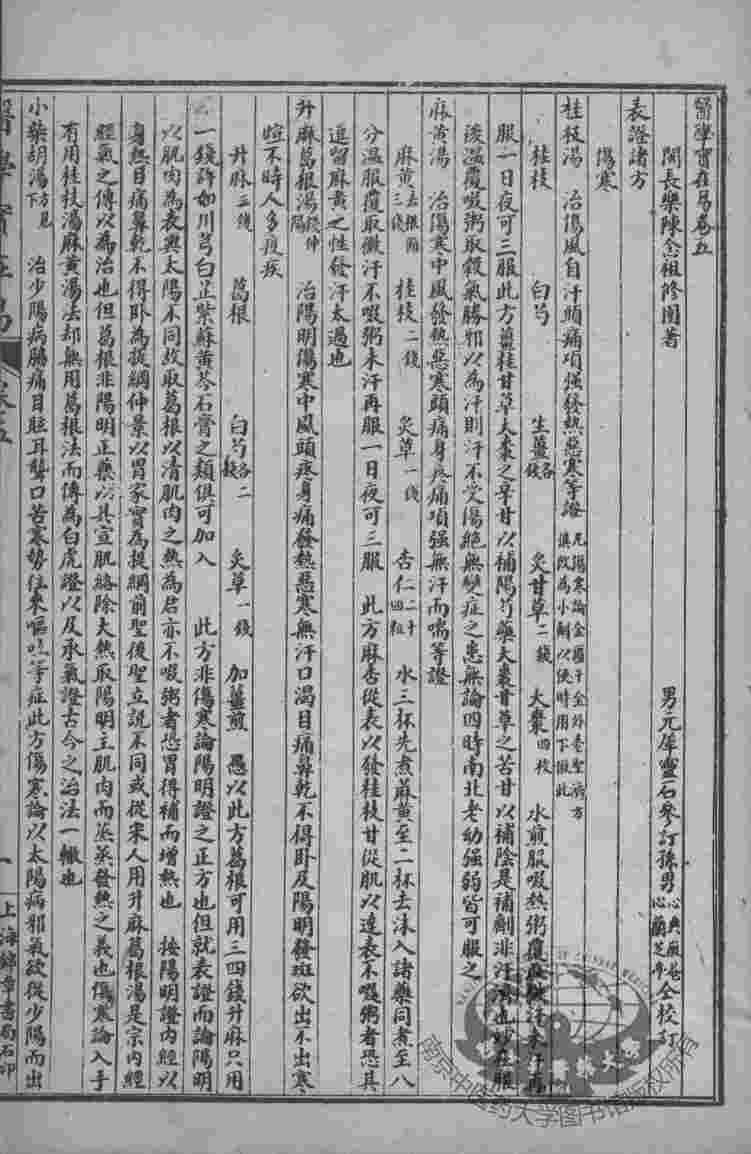 醫學實在易卷五
閩長樂陳念祖修園著 男元犀靈石參訂孫男心典心蘭芝亭仝校訂
表證諸方
傷寒
桂枝湯 治傷風自汗頭痛項强發熱惡寒等證凡傷寒論金匱千金外臺聖濟方俱改為小劑以便時用下倣此
桂枝 白芍 生薑各錢 炙甘草二錢 大棗四枚 水煎服啜熱粥覆取微汗未汗再
服一日夜可三服此方薑桂甘草大棗之辛甘以補陽芍藥大棗甘草之苦甘以補陰是補劑非汗劑也妙在服
後溫覆啜粥取穀氣勝邪以為汗則汗不受傷絕無變症之患無論四時南北老幼强弱皆可服之
麻黃湯 治傷寒中風發熱惡寒頭痛身疼痛項强無汗而喘等證
麻黃去根節三錢 桂枝二錢 炙草一錢 杏仁二十四粒 水三杯先煮麻黃至二杯去沫入諸藥同煮至八
分溫服覆取微汗不啜粥未汗再服一日夜可三服 此方麻杏從表以發桂枝甘從肌以達表不啜粥者恐其
逗留麻黃之性發汗太過也
升麻葛根湯錢仲陽 治陽明傷寒中風頭疼身痛發熱惡寒無汗口渴目痛鼻乾不得卧及陽明發斑欲出不出寒
暄不時人多疫疾
升麻三錢 葛根 白芍各二錢 炙草一錢 加薑煎 愚以此方葛根可用三四錢升麻只用
一錢許如川芎白芷紫蘇黃芩石膏之類俱可加入 此方非傷寒論陽明證之正方也但就表證而論陽明
以肌肉為表與太陽不同故取葛根以清肌肉之熱為君亦不啜粥者恐胃得補而增熱也 按陽明證內經以
身熱目痛鼻乾不得卧為提綱仲景以胃家實為提綱前聖後聖立說不同或從宋人用升麻葛根湯是宗內經
經氣之傳以為治也但葛根非陽明正藥以其宣肌絡除大熱取陽明主肌肉而蒸蒸發熱之義也傷寒論入手
有用桂枝湯麻黃湯法却無用葛根法而傳為白虎證以及承氣證古今之治法一轍也
小柴胡湯方見下 治少陽病脇痛目眩耳聾口苦寒勢往來嘔吐等症此方傷寒論以太陽病邪氣欲從少陽而出
醫學實在易 卷五 一 上海錦章書局石印
南京中医药大学图书馆版权所有